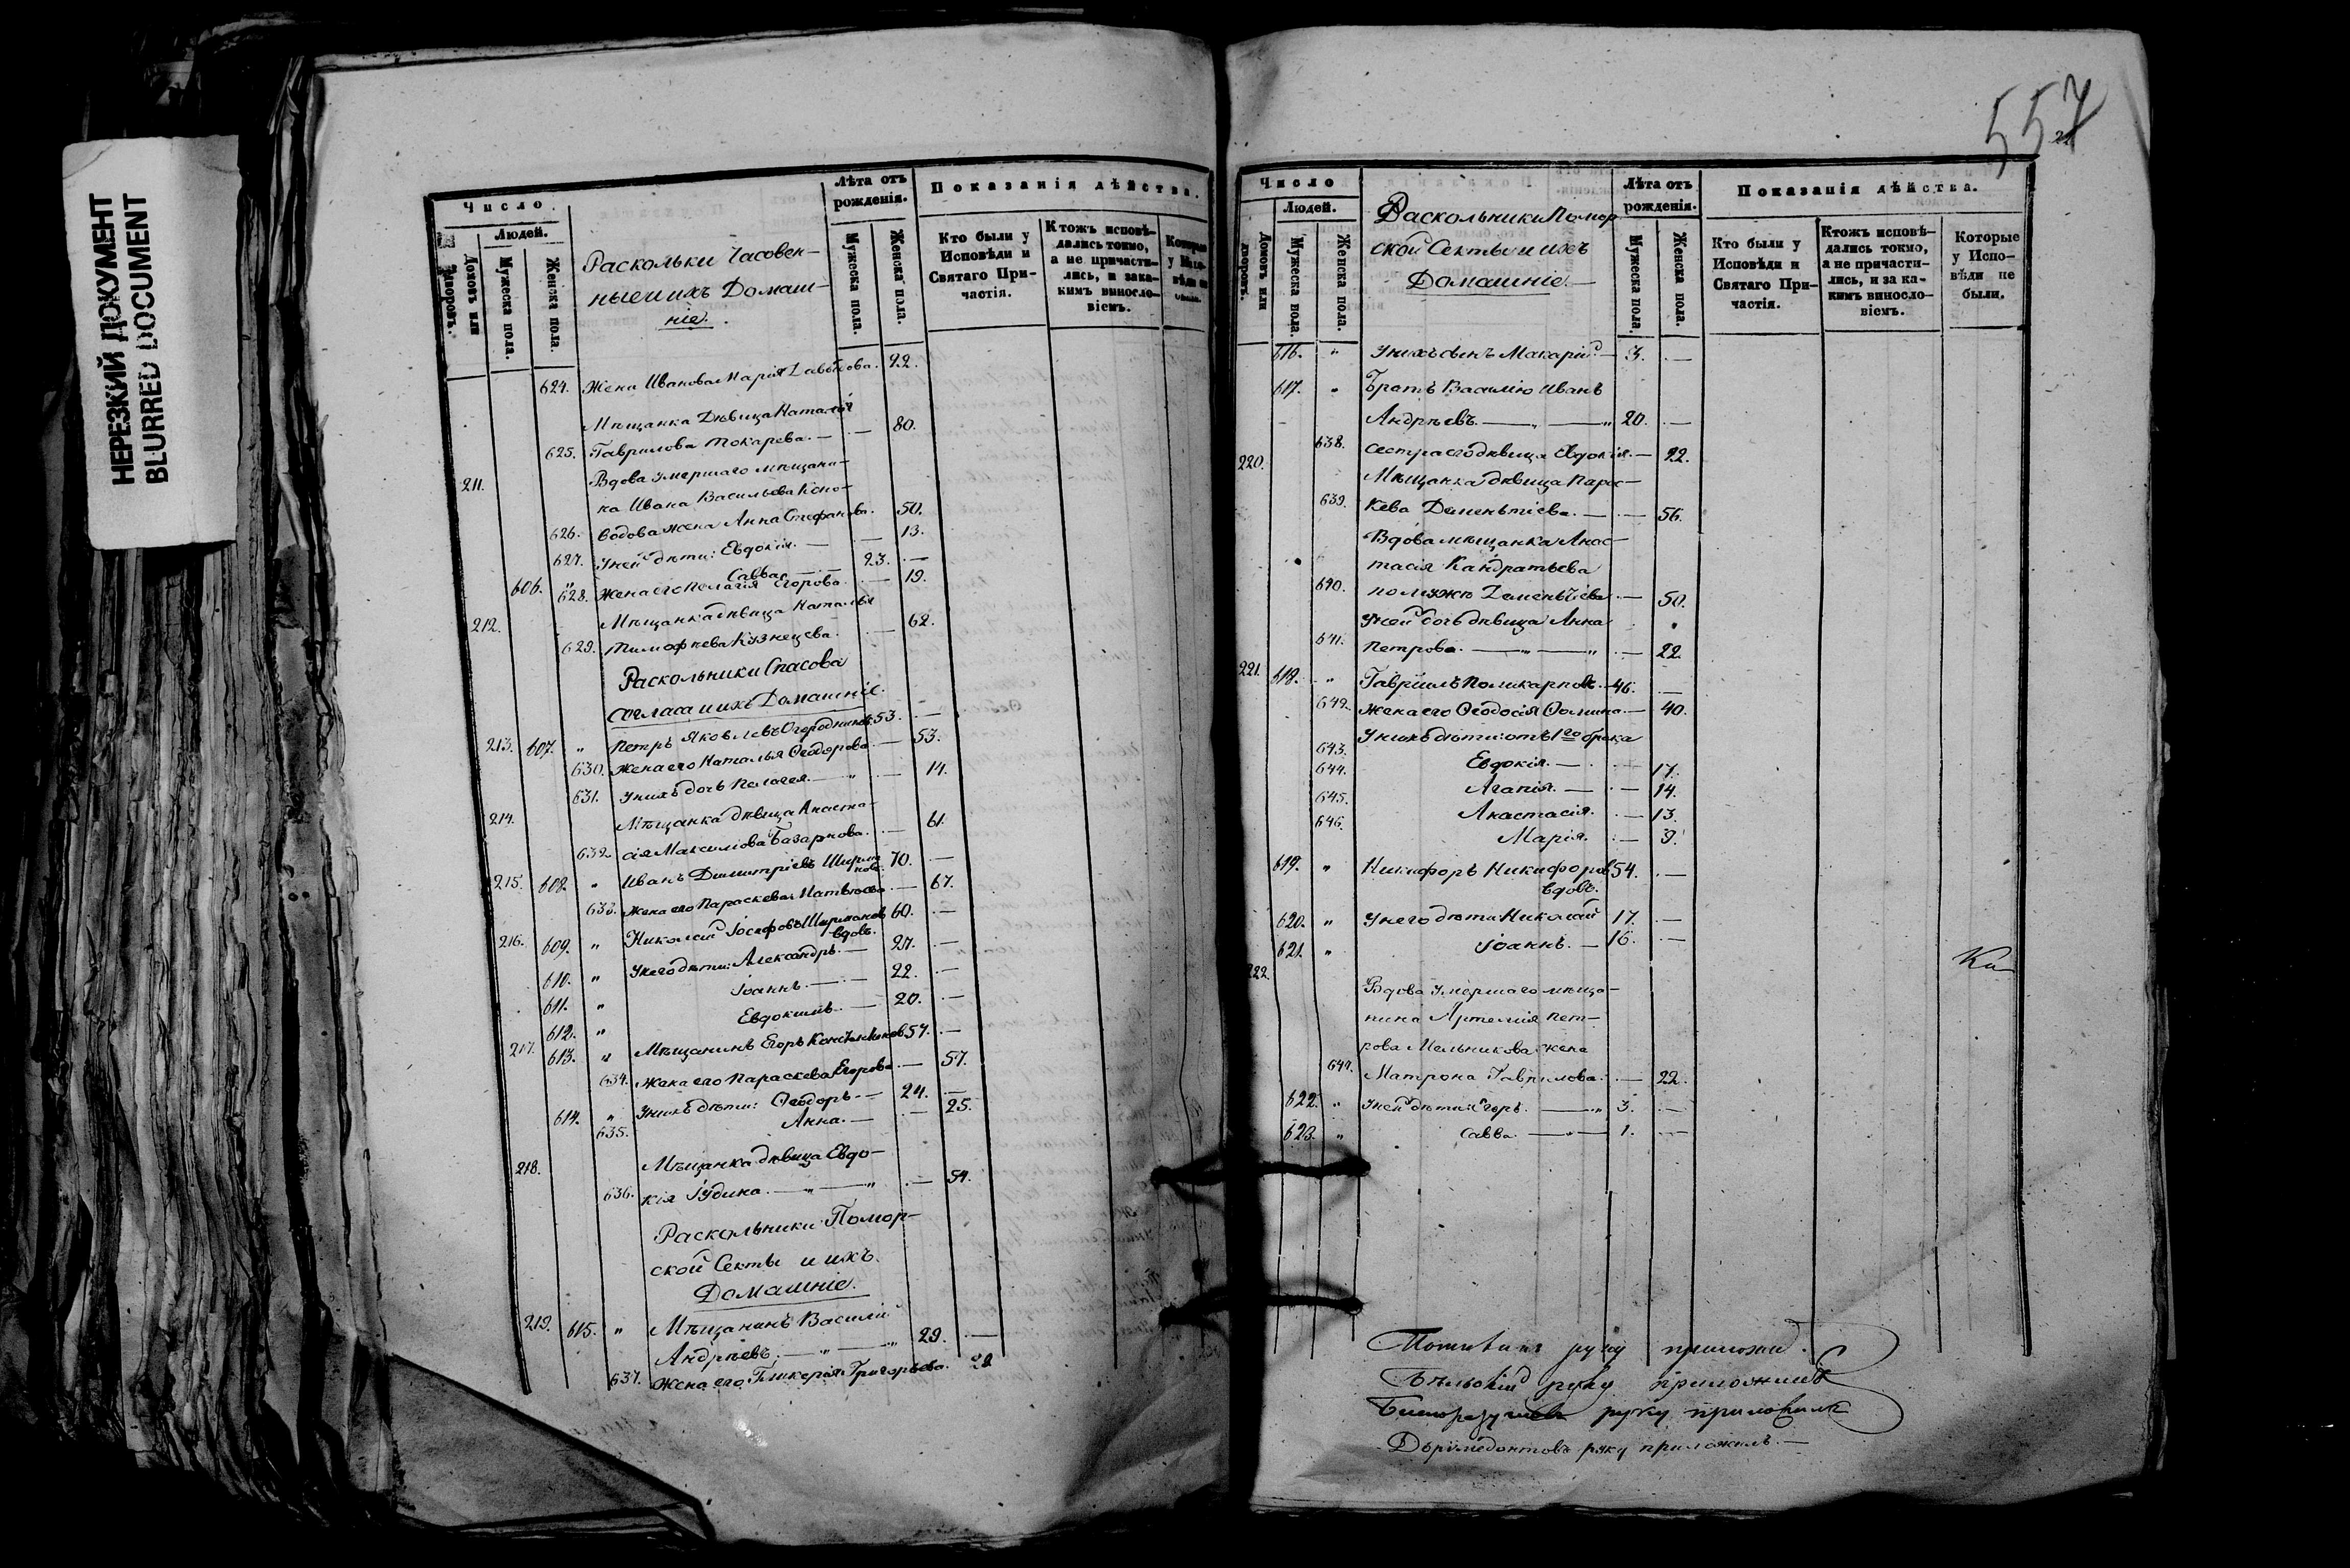 НЕРЕЗКИЙ ДОКУМЕНТ
BLURRED DOCUMENT
Число
Людей.
Домовъ или дворовъ.
Мужеска пола.
Женска пола.
Раскольки Часовен-
ные и ихъ Домаш-
ніе.
Лѣта отъ рожденія.
Мужеска пола.
Женска пола.
Показанія дѣйства.
Кто были у Исповѣди и Святаго При-частія.
Ктожъ исповѣ-дались токмо, а не причасти-лись, и зака-кимъ виносло-віемъ.
Которые у Испо-вѣди не были.
624. Жена Иванова Марія 22.
Мѣщанка Дѣвица Наталія
625. Гаврилова Токарева. — 80.
211. Вдова умершаго мѣщани-
на Ивана Васильева Коно-
626. водова жена Анна Стефанова. 50.
627. У ней дѣти: Евдокія. — 13.
606. " Савва — 23. —
628. Жена его Пелагія Егорова. — 19.
212. Мѣщанка дѣвица Наталья
629. Тимофѣева Кузнецева. — 62.
Раскольники Спасова
согласа и ихъ Домашніе.
213. 607. " Петръ Яковлевъ Огородниковъ 53. —
630. Жена его Наталья Ѳеодорова. — 53.
631. У нихъ дочь Пелагея. — " — 14.
214. Мѣщанка дѣвица Анаста-
632. сія Максимова Базарнова. — 61.
215. 608. " Иванъ Димитріевъ Ширма
новъ. 70. —
633. Жена его Параскева Матвѣева — 67.
216. 609. " Николай Іосифовъ Ширмановъ 60. —
вдовъ.
610. " У него дѣти: Александръ. — 27. —
611. " Іоаннъ. — 22. —
612. " Евдокимъ. — 20. —
217. 613. " Мѣщанинъ Егоръ 57. —
634. Жена его Параскева Егорова — 57.
614. " У нихъ дѣти: Ѳеодоръ — 24. —
635. Анна. — 25.
218. Мѣщанка дѣвица Евдо-
636. кія Іудина. — " — " — 54.
Раскольники Помор-
ской Секты и ихъ
Домашніе.
219. 615. " Мѣщанинъ Василій
Андреевъ. — " — " 29. —
637. Жена его Гликерія Григорьева. 28
557
Число
Людей.
Домовъ или дворовъ.
Мужеска пола.
Женска пола.
Раскольники Помор
ской Секты и ихъ
Домашніе. —
Лѣта отъ рожденія.
Мужеска пола.
Женска пола.
Показанія дѣйства.
Кто были у Исповѣди и Святаго При-частія.
Ктожъ исповѣ-дались токмо, а не причасти-лись, и за ка-кимъ виносло-віемъ.
Которые у Испо-вѣди не были.
616. " У нихъ сынъ Макарій — 3. —
617. " Братъ Василію Иванъ
Андреевъ. — " — " 20. —
638. Сестра его дѣвица Евдокія. — 22.
220. Мѣщанка дѣвица Парас-
639. кева Дементіева. — — 56.
Вдова мѣщанка Анас-
тасія Кандратьева
640. по мужѣ Дементіева — 50.
У ней дочь дѣвица Анна
641. Петрова. — " — " — 22.
221. 618. " Гавріилъ Поликарповъ. — 46. —
642. Жена его Ѳеодосія Ѳомина — 40.
У нихъ дѣти: отъ 1го брака
643. Евдокія. — — 17.
644. Агапія. — — 14.
645. Анастасія. — 13.
646. Марія. — 9.
619. " Никифоръ Никифоровъ 54. —
вдовъ.
620. " У него дѣти: Николай 17. —
621. " Іоаннъ. — 16. —
Ка
222. Вдова умершаго мѣща-
нина Артемія Пет-
рова Мельникова жена
647. Матрона Гаврилова. — 22.
622. " У ней дѣти: Егоръ. — " 3. —
623. " Савва. — " — 1. —
руку приложил.
Бѣльскій руку приложилъ
руку приложилъ
Доримедонтовъ руку приложилъ. —